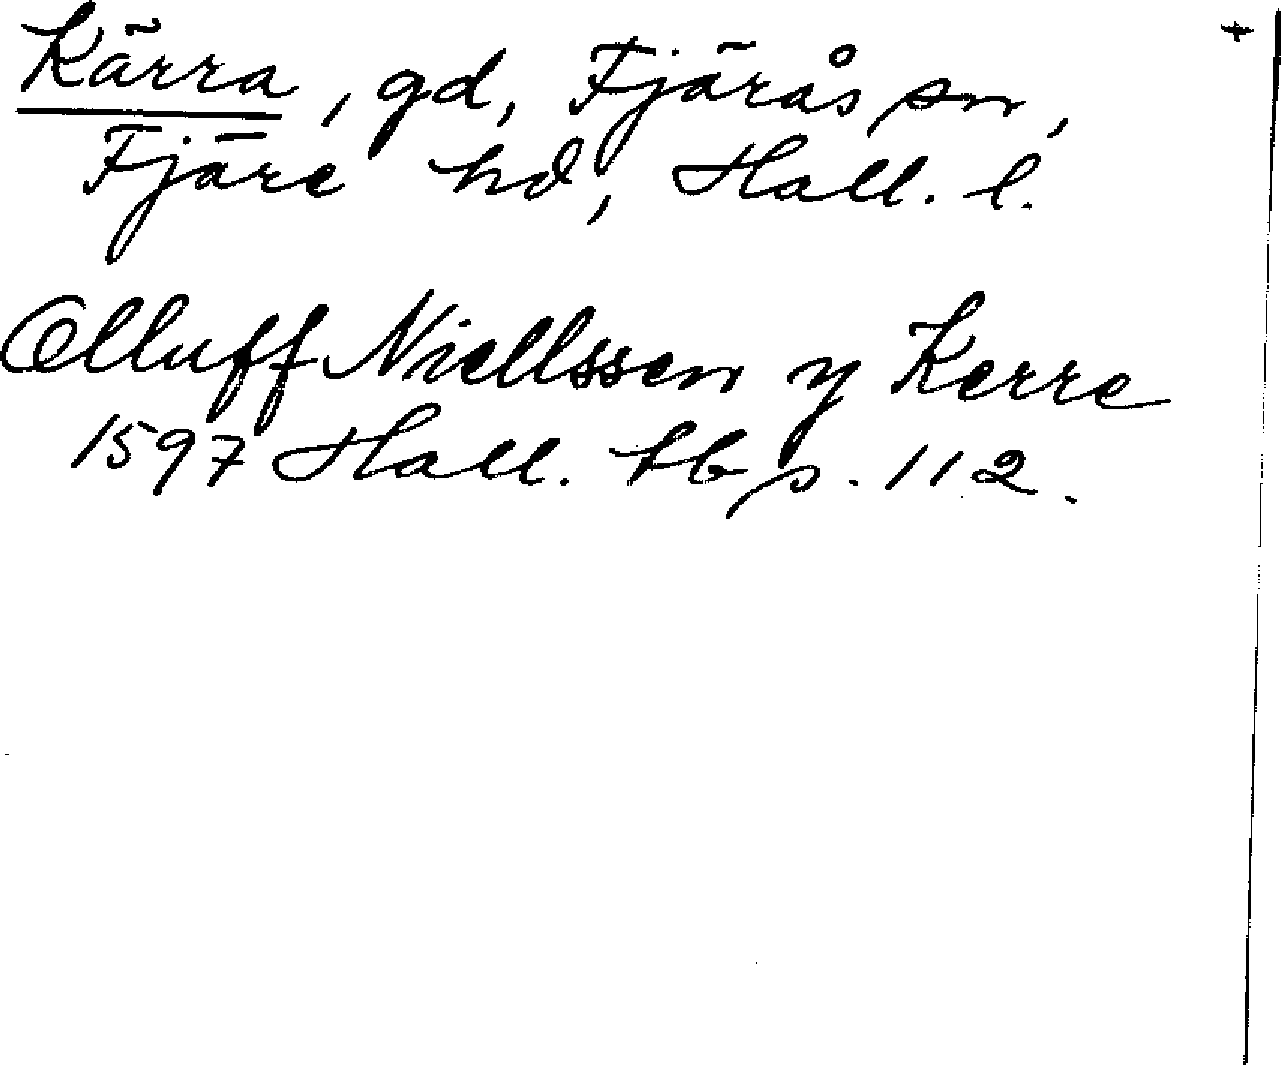 Kärra, gd, Fjärås sn, +
Fjäre hd, Hall. l.
Olluff Niellssen y Kerre
1597 Hall. tb s. 112.